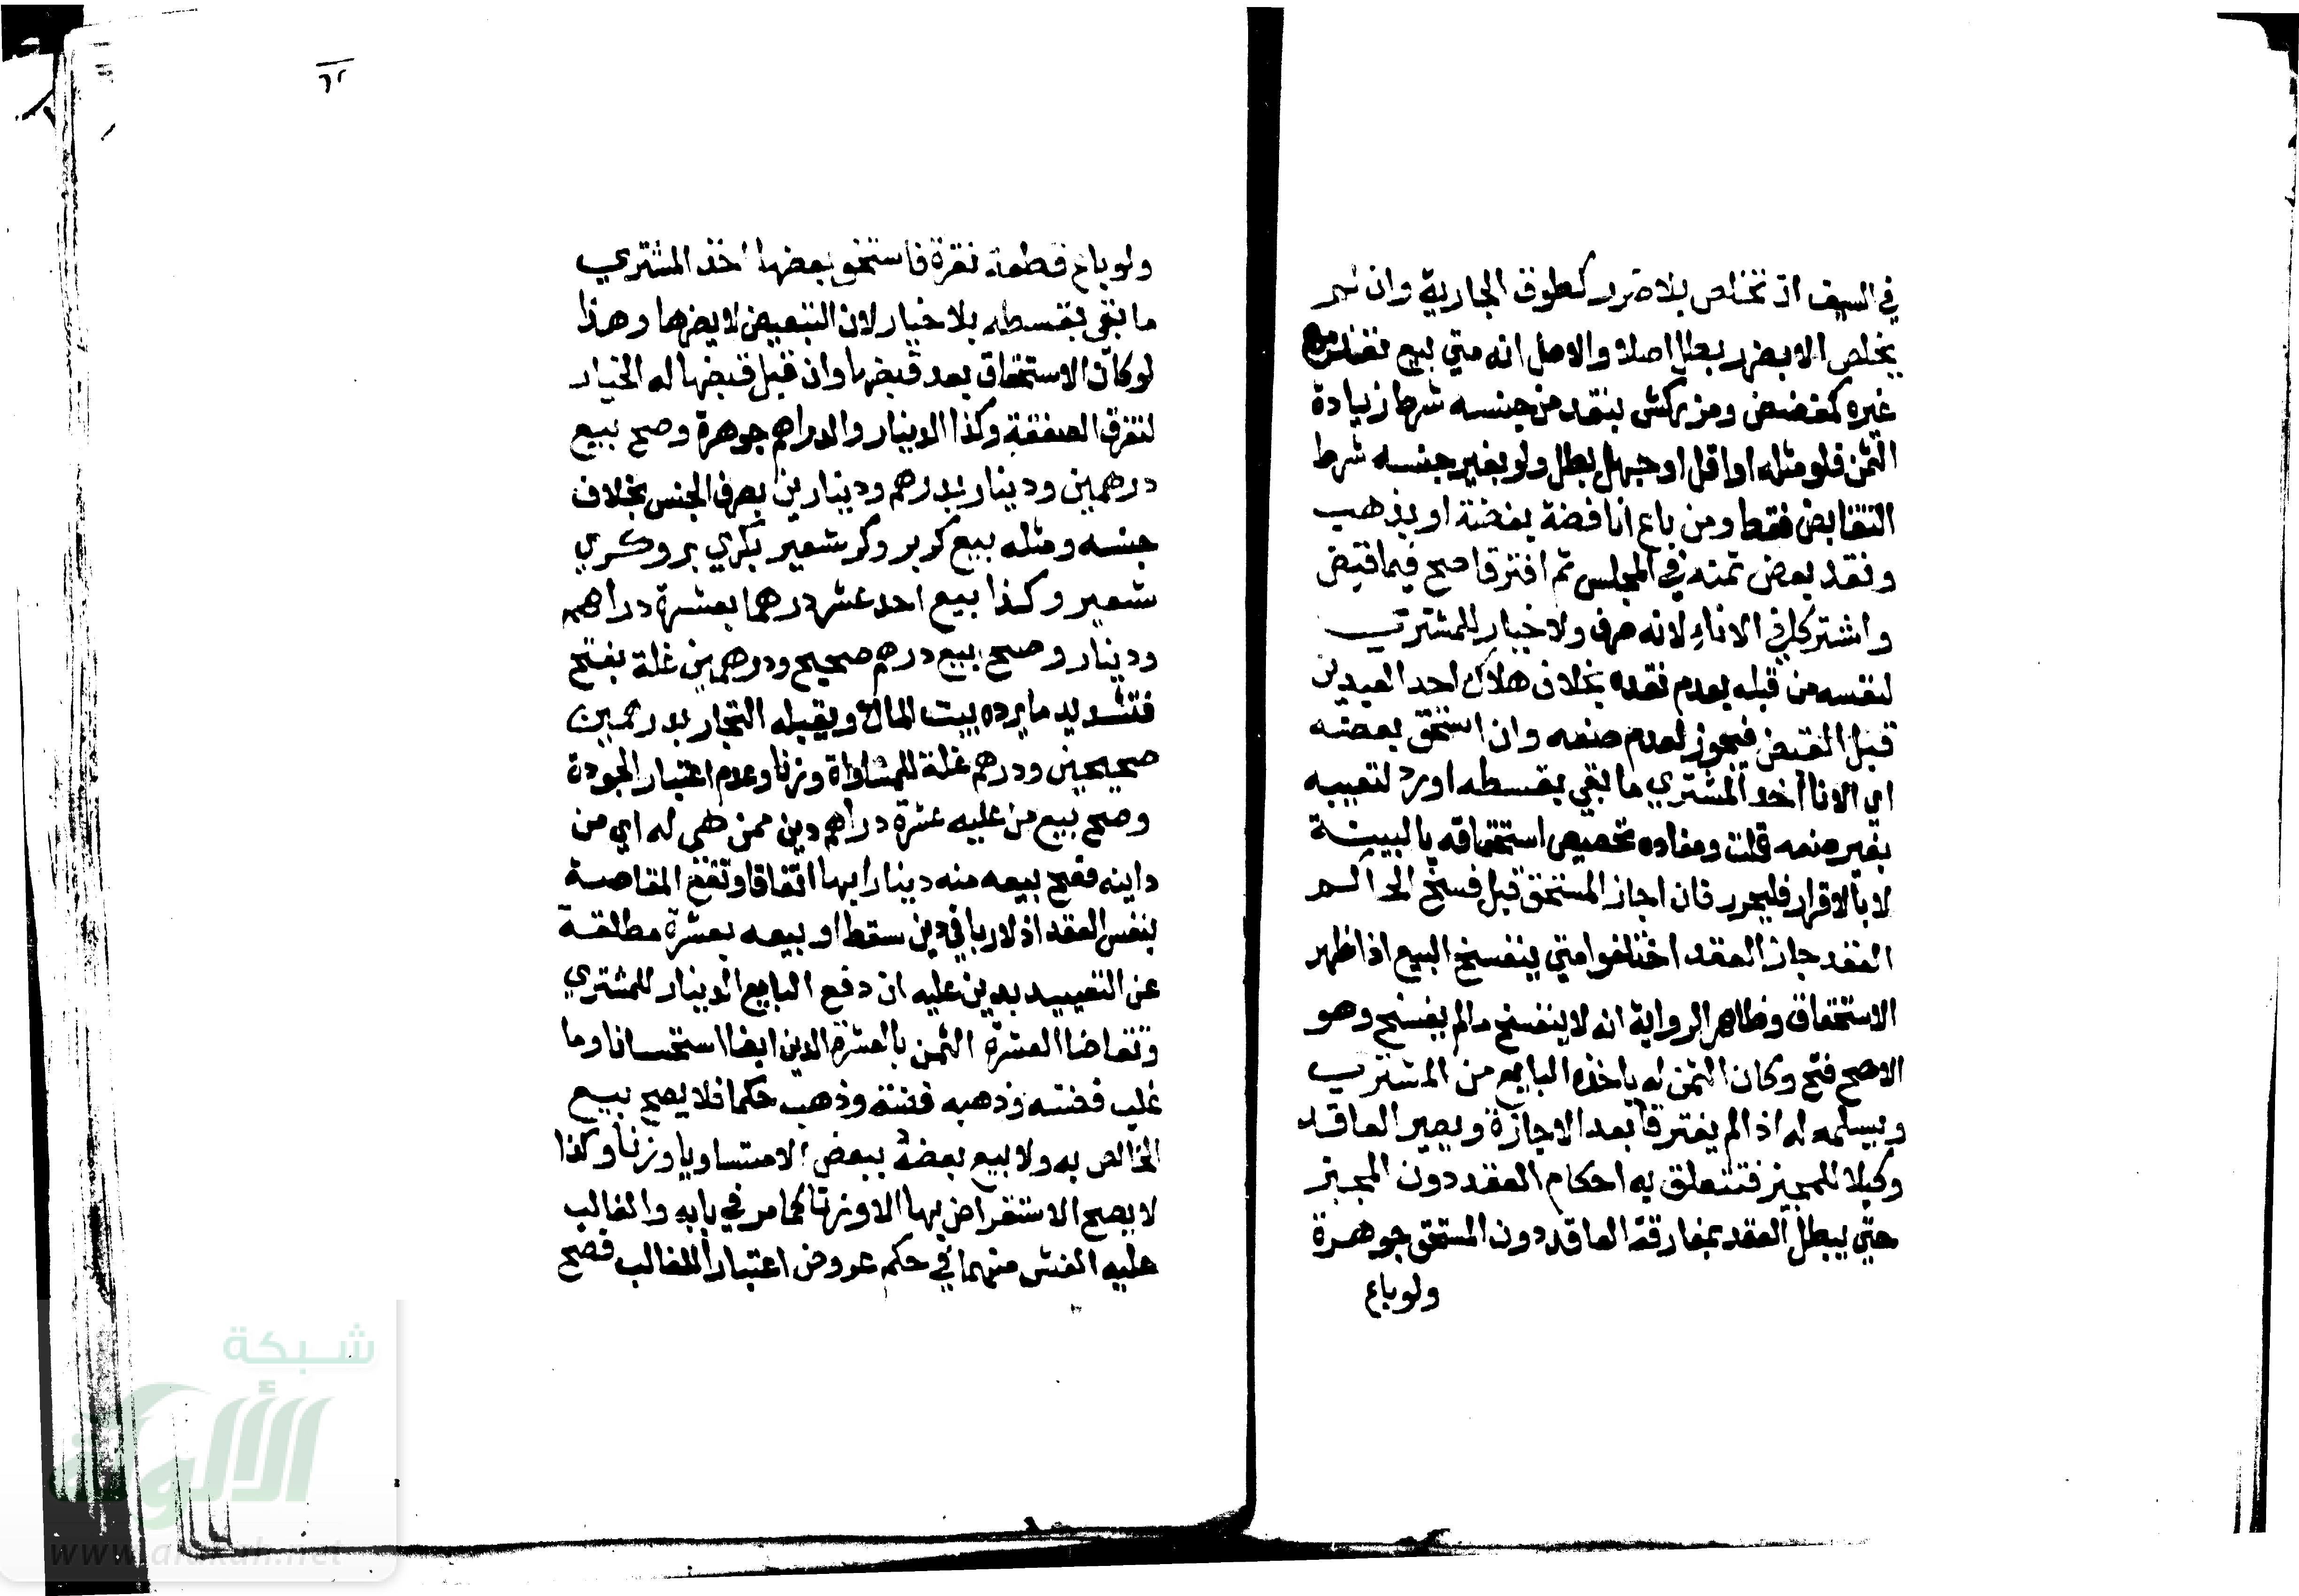 في السيف ان تخلص بلا ضرر كطوق الجارية وان لم
يخلص الا بضرر بطل اصلا والاصل انه متي بيع نقد مع
غيره كمفضض ومزركش بنقد من جنسه شرط زيادة
الثمن فلو مثله او اقل او جهل بطل ولو بغير جنسه شرط
التقابض فقط ومن باع انا فضة بفضة او بذهب
ونقد بعض ثمنه في المجلس ثم افترقا صح فيما قبض
واشتركا في الاناء لانه صرف ولا خيار للمشتري
لنفسه من قبله بعدم نقده بخلاف هلاك احد العبدين
قبل القبض فيجوز لعدم صنعه وان استحق بعضه
اي الانا اخد المشتري ما بقي بقسطه او رد لتعيبه
بغير صنعه قلت ومفاده تخصيص استحقاقه بالبينة
لا بالاقرار فليحرر فان اجاز المستحق قبل فسخ الحاكم
العقد جاز العقد اختلفوا متي ينفسخ البيع اذا ظهر
الاستحقاق وظاهر الرواية انه لا ينفسخ مالم يفسخ وهو
الاصح فتح وكان الثمن له ياخذه البايع من المشتري
ويسلمه له اذا لم يفترقا بعد الاجازة ويصير العاقد
وكيلا للمجيز فتتعلق به احكام العقد دون المجيز
حتي يبطل العقد بمفارقة العاقد دون المستحق جوهرة
ولو باع
٦٢
ولو باع قطعة نقرة فاستحق بعضها اخذ المشتري
ما بقي بقسطه بلا خيار لان التبعيض لا يضرها وهذا
لو كان الاستحقاق بعد قبضها وان قبل قبضها له الخيار
لتفرق الصفقة وكذا الدينار والدراهم جوهرة وصح بيع
درهمين ودينار بدرهم ودينارين بصرف الجنس بخلاف
جنسه ومثله بيع كر بر وكر شعير بكري بر وكري
شعير وكذا بيع احد عشر درهما بعشرة دراهم
ودينار وصح بيع درهم صحيح ودرهمين غلة بفتح
فتشديد ما يرده بيت المال ويقبله التجار بدرهمين
صحيحين ودرهم غلة للمساواة وزنا وعدم اعتبار الجودة
وصح بيع من عليه عشرة دراهم دين ممن هي له اي من
داينه فصح بيعه منه دينارا بها اتفاقا وتقع المقاصة
بنفس العقد اذ لا ربا في دين سقط او بيعه بعشرة مطلقة
عن التقييد بدين عليه ان دفع البايع الدينار للمشتري
وتقاضا العشرة الثمن بالعشرة الدين ايضا استحسانا وما
غلب فضته وذهبه فضة وذهب حكما فلا يصح بيع
الخالص به ولا بيع بعضه ببعض الا متساويا وزنا وكذا
لا يصح الاستقراض بها الا وزنا كما مر في بابه والغالب
عليه الغش منهما في حكم عروض اعتبارا للغالب فصح
شبكة
الألوكة
www.alukah.net